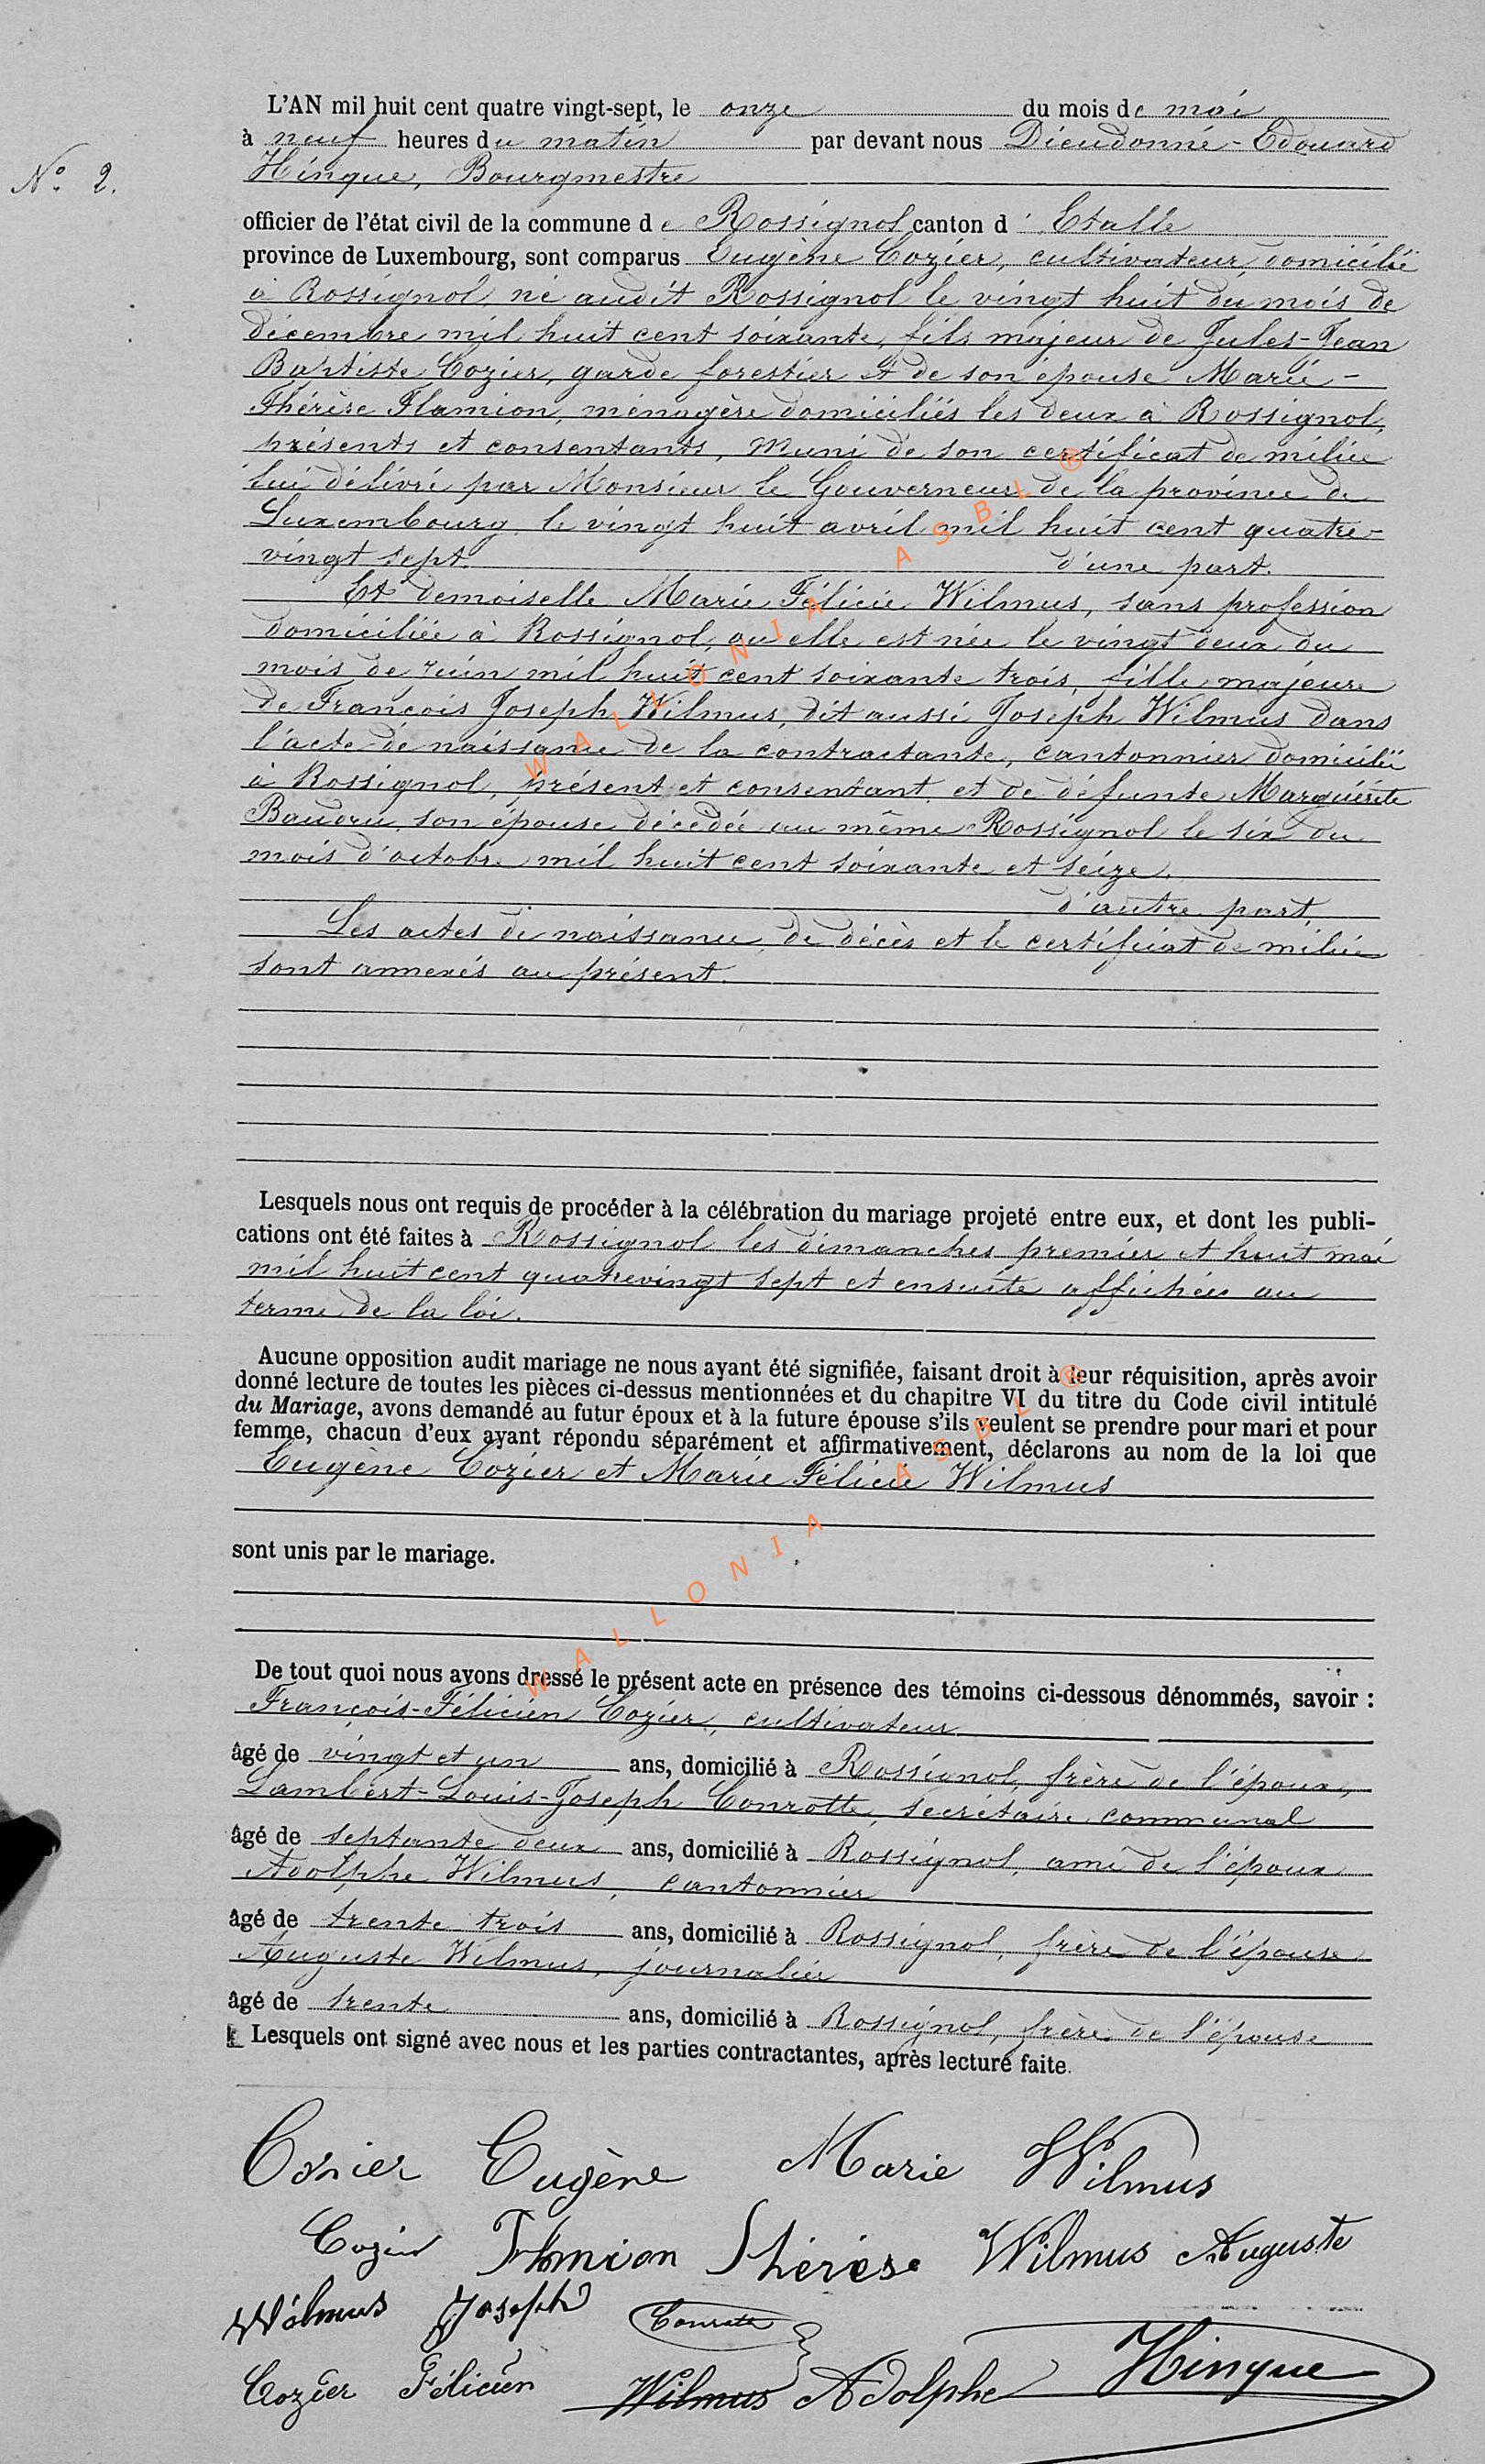 L'AN mil huit cent quatre vingt-sept, le onze du mois de mai
à neuf heures du matin par devant nous Dieudonné-Edouard
No. 2.
Hinque, Bourgmestre
officier de l'état civil de la commune de Rossignol canton d'Etalle
province de Luxembourg, sont comparus Eugène Cozier, cultivateur, domicilié
à Rossignol né audit Rossignol le vingt huit du mois de
décembre mil huit cent soixante, fils majeur de Jules-Jean
Baptiste Cozier, garde forestier et de son épouse Marie-
Thérèse Flamion, ménagère domiciliés les deux à Rossignol,
présents et consentants, muni de son certificat de milice
lui délivré par Monsieur le Gouverneur de la province de
Luxembourg le vingt huit avril mil huit cent quatre-
vingt sept. d'une part.
Et demoiselle Marie Félicie Wilmus, sans profession
domiciliée à Rossignol, ou elle est née le vingt deux du
mois de juin mil huit cent soixante trois, fille majeure
de François Joseph Wilmus, dit aussi Joseph Wilmus dans
l'acte de naissance de la contractante, cantonnier domicilié
à Rossignol, présent et consentant et de défunte Marguérite
Baudru, son épouse décédée au même Rossignol le six du
mois d'octobre mil huit cent soixante et seize.
d'autre part.
Les actes de naissance, de décès et le certificat de milice
sont annexés au présent.
Lesquels nous ont requis de procéder à la célébration du mariage projeté entre eux, et dont les publi-
cations ont été faites à Rossignol les dimanches premier et huit mai
mil huit cent quatrevingt sept et ensuite affichée au
terme de la loi.
Aucune opposition audit mariage ne nous ayant été signifiée, faisant droit à leur réquisition, après avoir
donné lecture de toutes les pièces ci-dessus mentionnées et du chapitre VI du titre du Code civil intitulé
du Mariage, avons demandé au futur époux et à la future épouse s'ils veulent se prendre pour mari et pour
femme, chacun d'eux ayant répondu séparément et affirmativement, déclarons au nom de la loi que
Eugène Cozier et Marie Félicie Wilmus
sont unis par le mariage.
De tout quoi nous avons dressé le présent acte en présence des témoins ci-dessous dénommés, savoir :
François-Félicien Cozier, cultivateur
âgé de vingt et un ans, domicilié à Rossignol, frère de l'époux,
Lambert-Louis-Joseph Conrotte, secrétaire communal
âgé de septante deux ans, domicilié à Rossignol, ami de l'époux
Adolphe Wilmus, cantonnier
âgé de trente trois ans, domicilié à Rossignol, frère de l'épouse
Auguste Wilmus, journalier
âgé de trente ans, domicilié à Rossignol, frère de l'épouse
Lesquels ont signé avec nous et les parties contractantes, après lecture faite.
Cosier Eugène Marie Wilmus
Cozier Flamion Thérèse Wilmus Auguste
Wilmus Joseph Conrotte
Cozier Félicien Wilmus Adolphe Hinque
WALLONIA ASBL ®
WALLONIA ASBL ®